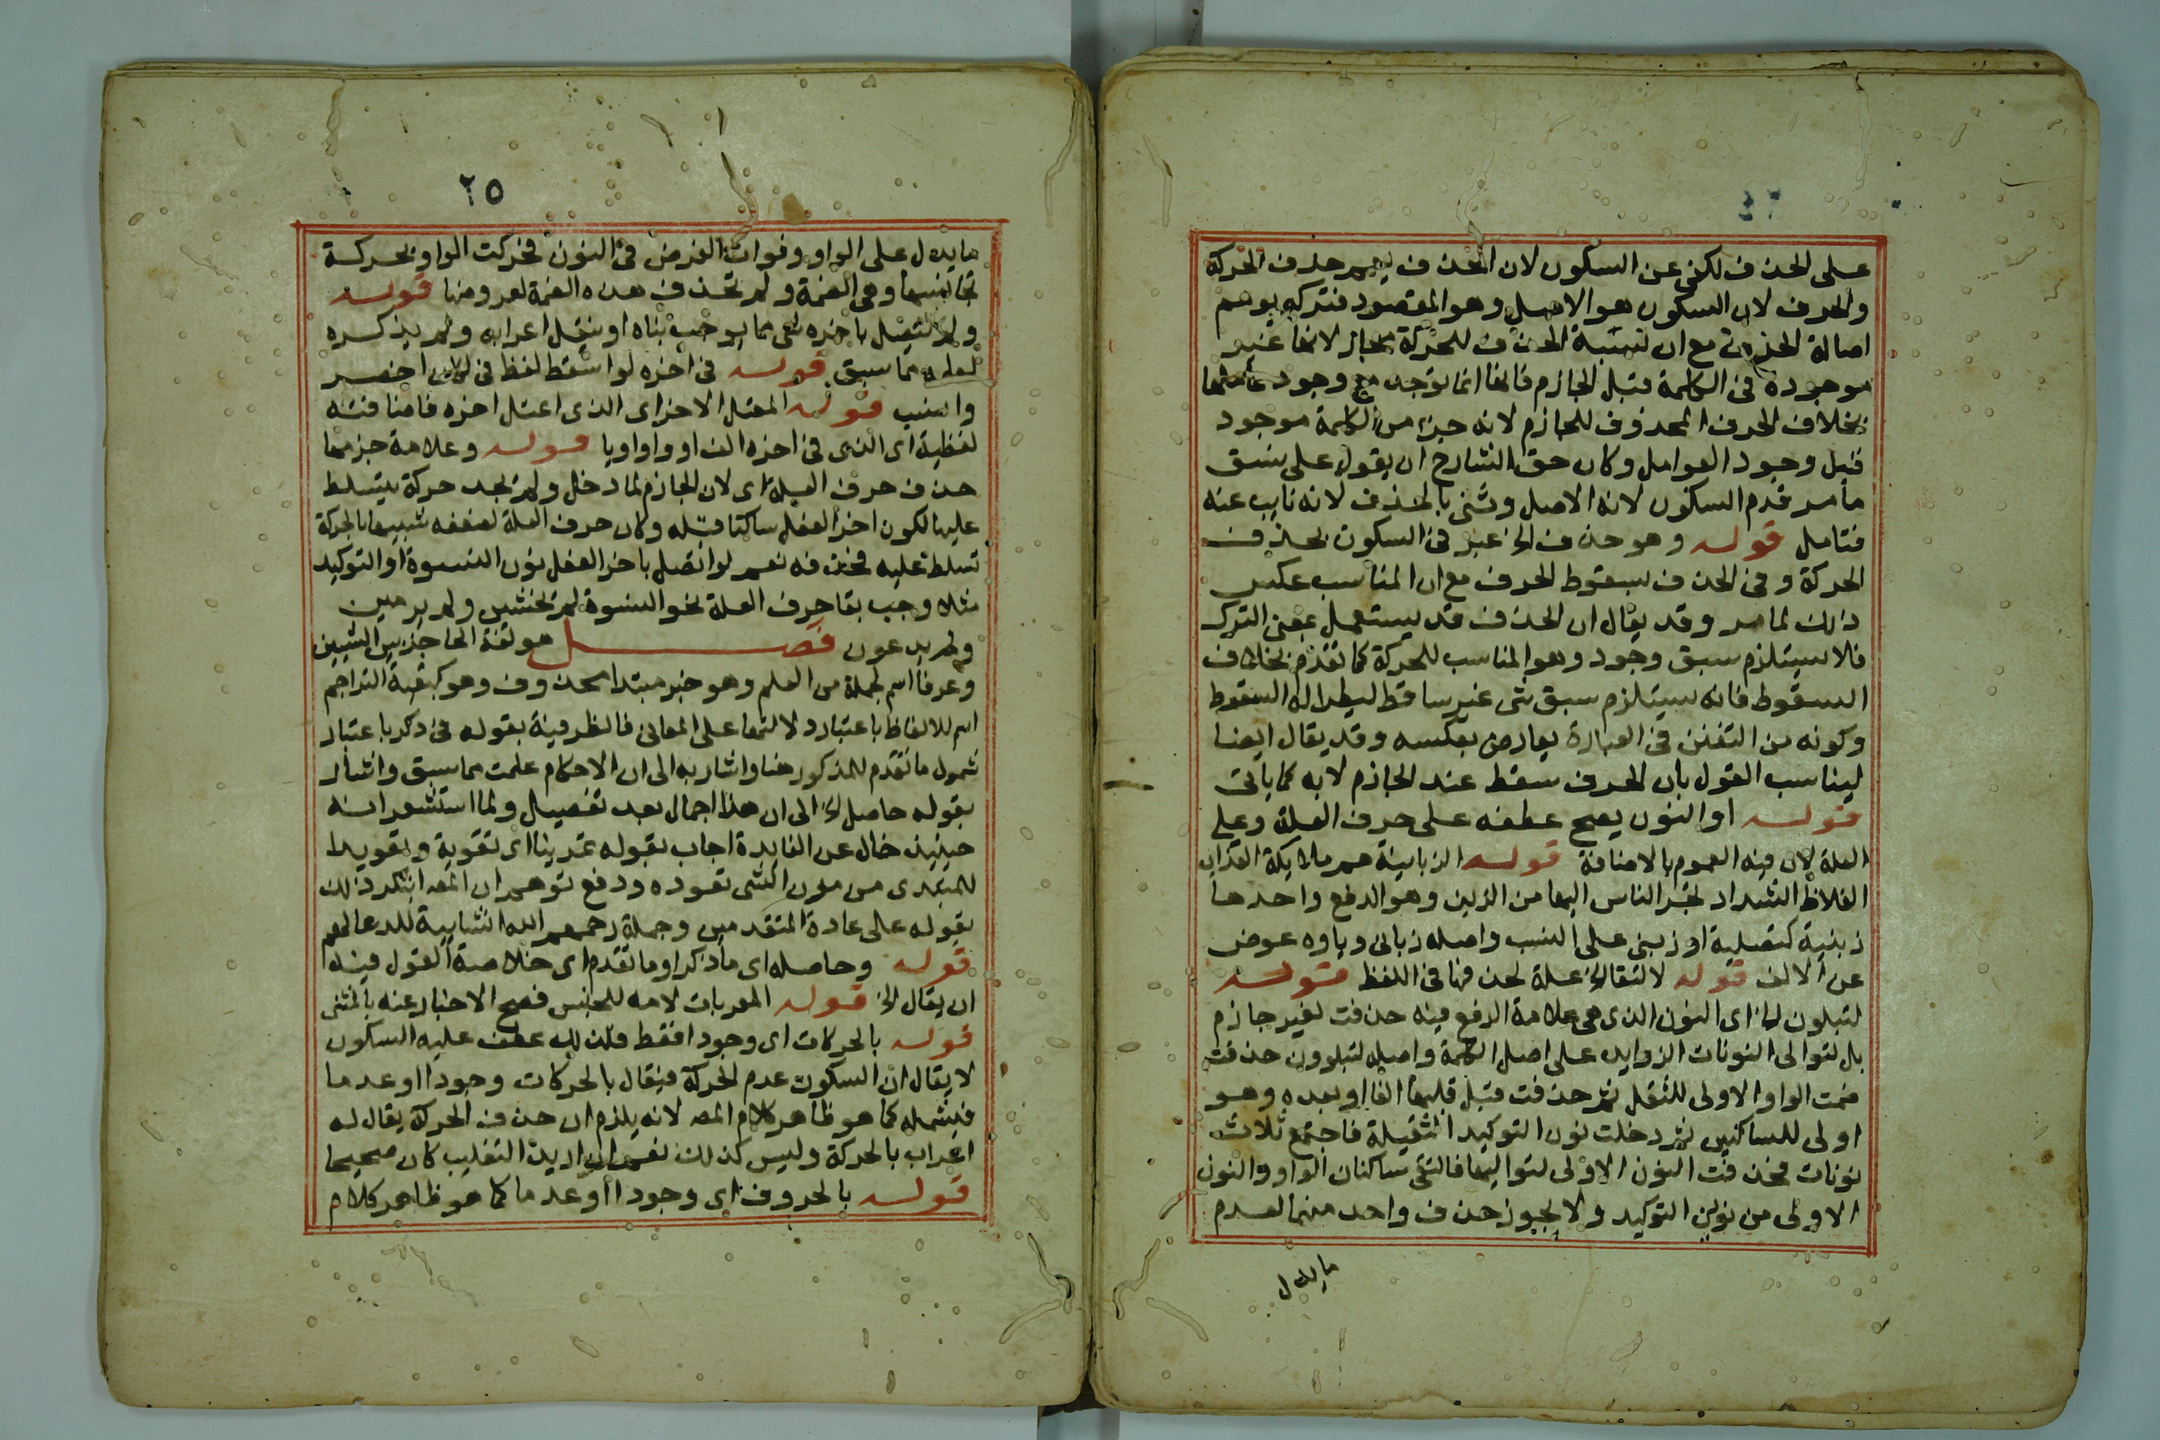 على الحذف لكفى عن السكون لان الحذف يعم حذف الحركة
والحرف لان السكون هو الاصل وهو المقصود فتركه يوهم
اصالة الحذف مع ان تسمية الحذف للحركة مجاز لانها غير
موجودة في الكلمة قبل الجازم فانها انما توجد مع وجود عاملها
بخلاف الحرف المحذوف للجازم لانه جزء من الكلمة موجود
قبل وجود العوامل وكان حق الشارح ان يقول على نسق
ما مر قدم السكون لانه الاصل وثنى بالحذف لانه نايب عنه
فتامل قوله وهو حذف الخ عبر في السكون بحذف
الحركة وفي الحذف بسقوط الحرف مع ان المناسب عكس
ذلك لما مر وقد يقال ان الحذف قد يستعمل بمعنى الترك
فلا يستلزم سبق وجود وهو المناسب للحركة كما تقدم بخلاف
السقوط فانه يستلزم سبق شى غير ساقط ليطرا له السقوط
وكونه من التفنن في العبارة يعارض بعكسه وقد يقال ايضا
ليناسب القول بان الحرف سقط عند الجازم لا به كما ياتى
قوله او النون يصح عطفه على حرف العلة وعلى
العلة لان فيه العموم بالاضافة قوله الزبانية هم ملايكة العذاب
الغلاظ الشداد لجر الناس اليها من الزبن وهو الدفع واحدها
زبنية كتصلية او زبنى على النسب واصله زبانى وياوه عوض
عن الالف قوله لالتقا الخ علة لحذفها في اللفظ قوله
لتبلون الخ اى النون الذى هى علامة الرفع فيه حذفت لغير جازم
بل لتوالى النونات الزوايد على اصل الكلمة واصله لتبلوون حذفت
ضمت الواو الاولى للثقل ثم حذفت قبل قلبها الفا او بعده وهو
اولى للساكنين ثم دخلت نون التوكيد الثقيلة فاجتمع ثلاث
نونات فحذفت النون الاولى لتواليها فالتقى ساكنان الواو والنون
الاولى من نونى التوكيد ولا يجوز حذف واحد منهما لعدم
مايدل
٢٥
مايدل على الواو وفوات الغرض في النون فحركت الواو بحركة
تجانسها وهى الضمة ولم تحذف هذه الضمة لعروضها قوله
ولم يتصل باخره شى مما يوجب بناه او ينقل اعرابه ولم يذكره
لعلمه مما سبق قوله في اخره لو اسقط لفظ في لكان اخصر
وانسب قوله المعتل الاخر اى الذى اعتل اخره فاضافته
لفظية اى الذى في اخره الف او واو او يا قوله وعلامة جزمها
حذف حرف العلة اى لان الجازم لما دخل ولم يجد حركة يتسلط
عليها لكون اخر الفعل ساكنا قبله وكان حرف العلة لضعفه شبيها بالحركة
تسلط عليه فحذفه نعم لو اتصل باخر الفعل نون النسوة او التوكيد
مثلا وجب بقا حرف العلة نحو النسوة لم يخشين ولم يرمين
ولم يدعون فصل هو لغة الحاجز بين الشيين
وعرفا اسم لجملة من العلم وهو خبر مبتدا محذوف وهو كبقية التراجم
اسم للالفاظ باعتبار دلالتها على المعانى فالظرفية بقوله في ذكر باعتبار
شمول ما تقدم للمذكور هنا واشار به الى ان الاحكام علمت مما سبق واشار
بقوله حاصل الخ الى ان هذا اجمال بعد تفصيل ولما استشعر انه
حينيذ خال عن الفايدة اجاب بقوله تمرينا اى تقوية وتعويدا
للمبتدى من مرن الشى تعوده ودفع توهم ان المص ابتكر ذلك
بقوله على عادة المتقدمين وجملة رحمهم الله انشايية للدعا لهم
قوله وحاصله اى ما ذكر او ما تقدم اى خلاصة القول فيه
ان يقال الخ قوله المعربات لامه للجنس فصح الاخبار عنه بالمثنى
قوله بالحركات اى وجودا فقط فلذلك عطف عليه السكون
لا يقال ان السكون عدم الحركة فيقال بالحركات وجودا او عدما
فيشمله كما هو ظاهر كلام المص لانه يلزم ان حذف الحركة يقال له
اعراب بالحركة وليس كذلك نعم ان اريد التغليب كان صحيحا
قوله بالحروف اى وجودا او عدما كما هو ظاهر كلام